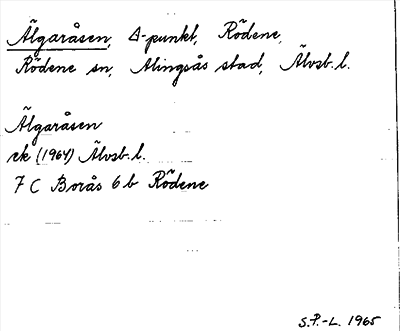 Älgaråsen, Δ-punkt, Rödene,
Rödene sn, Alingsås stad, Älvsb. l.
Älgaråsen
ek (1964) Älvsb. l.
7 C Borås 6 b Rödene
S.P.-L. 1965